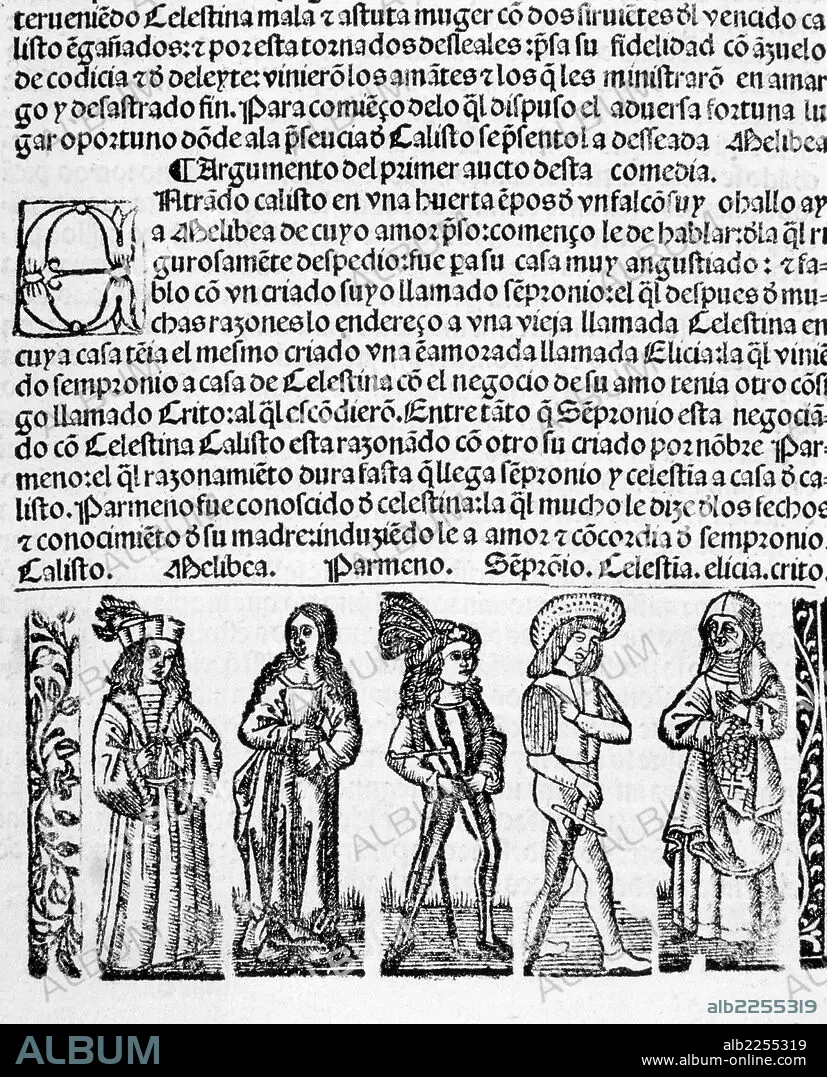 terueniẽdo Celestina mala ⁊ astuta muger cõ dos siruiẽtes ðl vencido ca
listo ẽgañados: ⁊ por esta tornados desleales: p̃sa su fidelidad cõ ãzuelo
de codicia ⁊ ð deleyte: vinierõ los amãtes ⁊ los q̃ les ministrarõ en amar
go y desastrado fin. Para comiẽço delo q̃l dispuso el aduersa fortuna lu
gar oportuno dõde ala p̃seucia ð Calisto se p̃sento la desseada Melibea
¶ Argumento del primer aucto desta comedia.
ENtrãdo calisto en vna huerta ẽpos ð vn falcõ suyo hallo ay
a Melibea de cuyo amor p̃so: començo le de hablar: ðla q̃l ri
gurosamẽte despedio: fue pa su casa muy angustiado: ⁊ fa-
blo cõ vn criado suyo llamado sẽpronio: el q̃l despues ð mu-
chas razones lo endereço a vna vieja llamada Celestina en
cuya casa tẽia el mesmo criado vna ẽamorada llamada Elicia: la q̃l viniẽ
do sempronio a casa de Celestina cõ el negocio de su amo tenia otro cõsi
go llamado Crito: al q̃l escõdierõ. Entre tãto q̃ Sẽpronio esta negociã-
do cõ Celestina Calisto esta razonãdo cõ otro su criado por nõbre Par-
meno: el q̃l razonamiẽto dura fasta q̃ llega sẽpronio y celestĩa a casa ð ca-
listo. Parmeno fue conoscido ð celestina: la q̃l mucho le dize ðlos fechos
⁊ conocimiẽto ð su madre: induziẽdo le a amor ⁊ cõcordia ð sempronio.
Calisto. Melibea. Parmeno. Sẽprõio. Celestĩa. elicia. crito
alb2255319
ALBUM
alb2255319
www.album-online.com